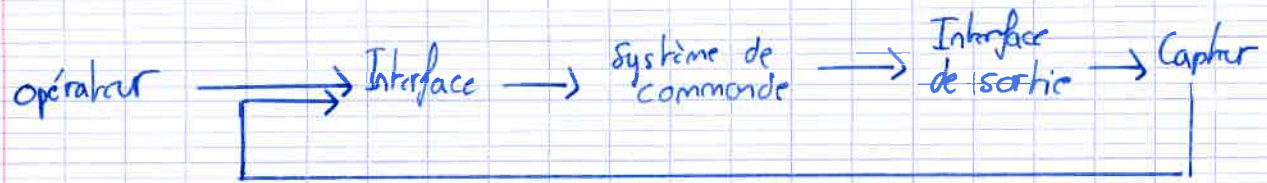 opérateur
Interface
Système de
commande
Interface
de sortie
Capteur